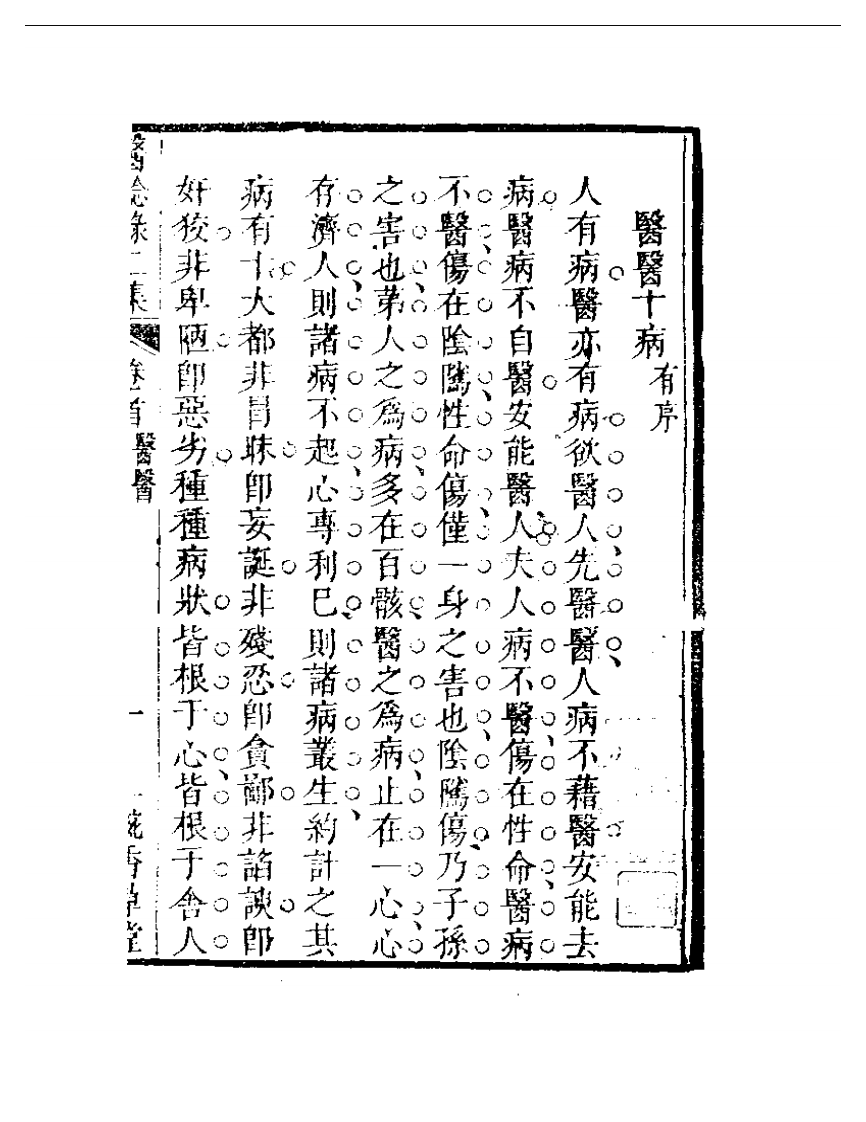 醫醫十病有序
人有病醫亦有病欲醫人先醫醫人病不藉醫安能去
病醫病不自醫安能醫人夫人病不醫傷在性命醫病
不醫傷在陰隲性命傷僅一身之害也陰隲傷乃子孫
之害也第人之爲病多在百骸醫之爲病止在一心心
存濟人則諸病不起心專利已則諸病叢生約計之其
病有十大都非冐昧卽妄誕非殘忍卽貪鄙非謟諛卽
奸狡非卑陋卽惡劣種種病狀皆根于心皆根于舍人
醫忩錄二集 卷首 醫醫 一 畹香草堂